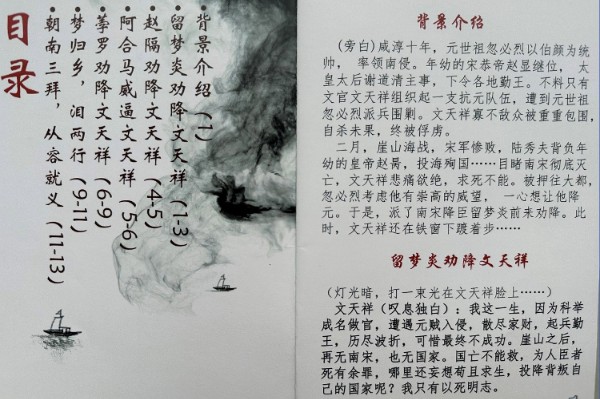 目录
背景介绍(1)
留梦炎劝降文天祥(1-3)
赵隰劝降文天祥(4-5)
阿合马威逼文天祥(5-6)
孛罗劝降文天祥(6-9)
梦归乡，泪两行(9-11)
朝南三拜，从容就义(11-13)
背景介绍
（旁白)咸淳十年，元世祖忽必烈以伯颜为统
帅， 率领南侵。年幼的宋恭帝赵显继位， 太
皇太后谢道清主事，下令各地勤王。不料只有
文官文天祥组织起一支抗元队伍，遭到元世祖
忽必烈派兵围剿。文天祥寡不敌众被重重包围，
自杀未果，终被俘虏。
二月，崖山海战，宋军惨败，陆秀夫背负年
幼的皇帝赵昺，投海殉国……目睹南宋彻底灭
亡，文天祥悲痛欲绝，求死不能。被押往大都，
忽必烈考虑他有崇高的威望， 一心想让他降
元。于是，派了南宋降臣留梦炎前来劝降。此
时，文天祥还在铁窗下踱着步……
留梦炎劝降文天祥
（灯光暗，打一束光在文天祥脸上……）
文天祥（叹息独白）：我这一生，因为科举
成名做官，遭遇元贼入侵，散尽家财，起兵勤
王，历尽波折，可惜最终不成功。崖山之后，
再无南宋，也无国家。国亡不能救，为人臣者
死有余罪，哪里还妄想苟且求生，投降背叛自
己的国家呢？我只有以死明志。